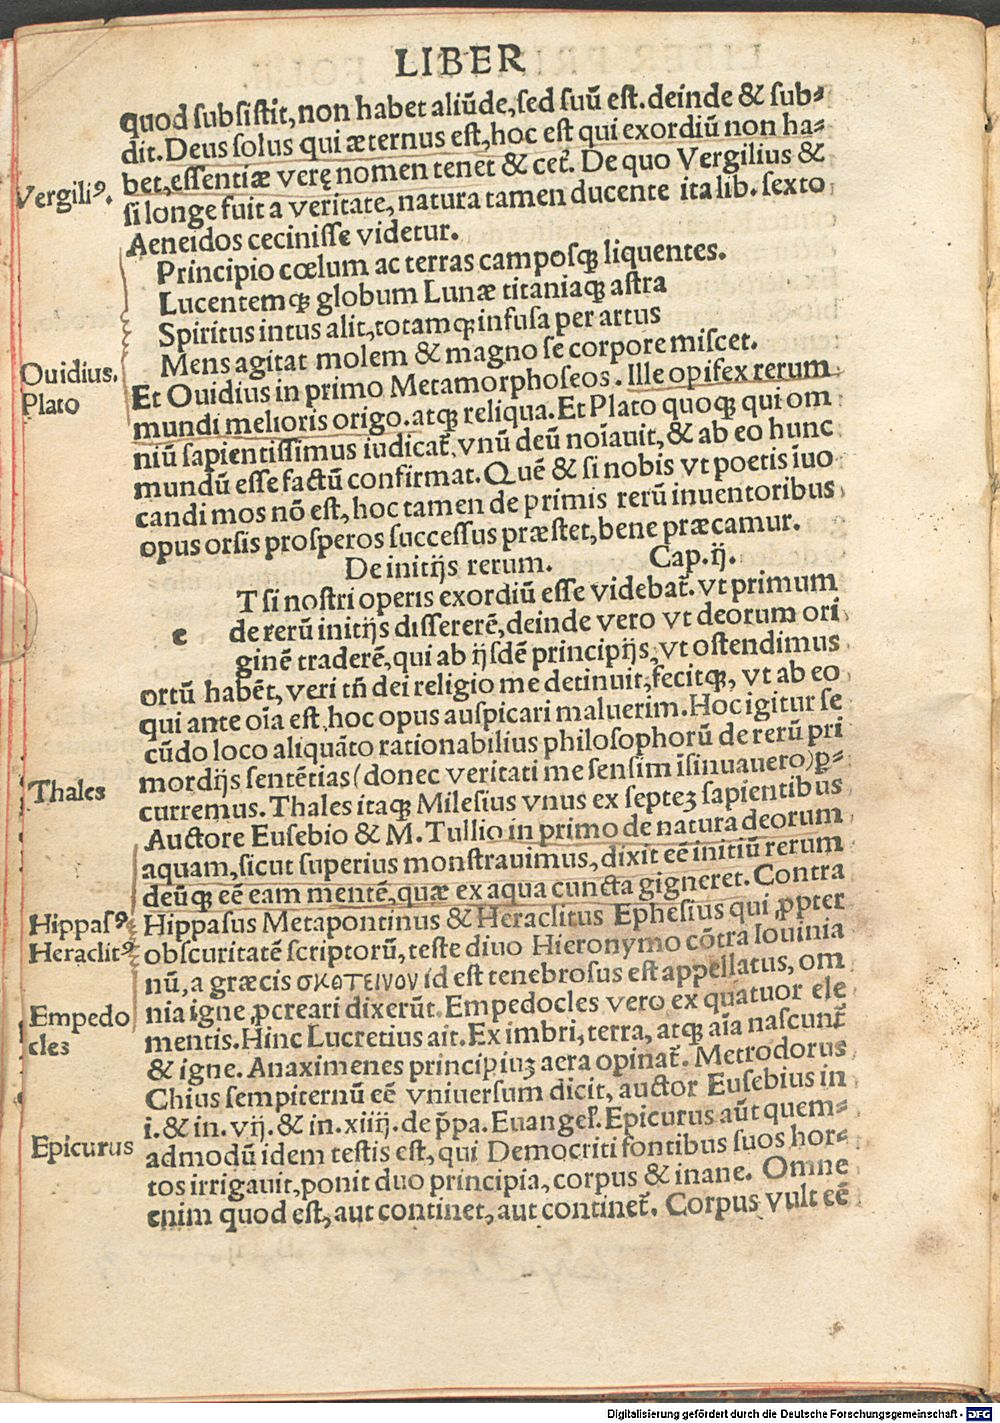 LIBER
quod subsistit, non habet aliũde, sed suũ est. deinde & sub⸗
dit. Deus solus qui æternus est, hoc est qui exordiũ non ha⸗
bet, essentiæ verę nomen tenet & cet᷑. De quo Vergilius &
Vergiliꝰ.
si longe fuit a veritate, natura tamen ducente ita lib. sexto
Aeneidos cecinisse videtur.
Principio cœlum ac terras camposqꝫ liquentes.
Lucentemqꝫ globum Lunæ titaniaqꝫ astra
Spiritus intus alit, totamqꝫ infusa per artus
Mens agitat molem & magno se corpore miscet.
Ouidius.
Et Ouidius in primo Metamorphoseos. Ille opifex rerum
Plato
mundi melioris origo. atqꝫ reliqua. Et Plato quoqꝫ qui om
niũ sapientissimus iudicat᷑. vnũ deũ noĩauit, & ab eo hunc
mundũ esse factũ confirmat. Quẽ & si nobis vt poetis ĩuo
candi mos nõ est, hoc tamen de primis rerũ inuentoribus
opus orsis prosperos successus præstet, bene præcamur.
De initijs rerum. Cap. ij.
T si nostri operis exordiũ esse videbat᷑. vt primum
e de rerũ initijs dissererẽ, deinde vero vt deorum ori
ginẽ traderẽ, qui ab ijsdẽ principijs, vt ostendimus
ortũ habẽt, veri tñ dei religio me detinuit, fecitqꝫ, vt ab eo
qui ante oĩa est, hoc opus auspicari maluerim. Hoc igitur se
cũdo loco aliquãto rationabilius philosophorũ de rerũ pri
mordijs sentẽtias (donec veritati me sensim ĩsinuauero) ꝑ⸗
Thales
curremus. Thales itaqꝫ Milesius vnus ex septeꝫ sapientibus
Auctore Eusebio & M. Tullio in primo de natura deorum
aquam, sicut superius monstrauimus, dixit eẽ initiũ rerum
deũqꝫ eẽ eam mentẽ, quæ ex aqua cuncta gigneret. Contra
Hippasꝰ
Hippasus Metapontinus & Heraclitus Ephesius qui ꝓpter
Heraclitꝰ
obscuritatẽ scriptorũ, teste diuo Hieronymo cõtra Iouinia
nũ, a græcis σκοτεινον id est tenebrosus est appellatus, om
nia igne ꝓcreari dixerũt. Empedocles vero ex quatuor ele
Empedo
cles
mentis. Hinc Lucretius ait. Ex imbri, terra, atqꝫ aĩa nascunt᷑
& igne. Anaximenes principiuꝫ aera opinat᷑. Metrodorus
Chius sempiternũ eẽ vniuersum dicit, auctor Eusebius in
i. & in. vij. & in. xiiij. de p̃pa. Euangel᷑. Epicurus aũt quem⸗
Epicurus
admodũ idem testis est, qui Democriti fontibus suos hor⸗
tos irrigauit, ponit duo principia, corpus & inane. Omne
enim quod est, aut continet, aut continet᷑. Corpus vult eẽ
Digitalisierung gefördert durch die Deutsche Forschungsgemeinschaft - DFG